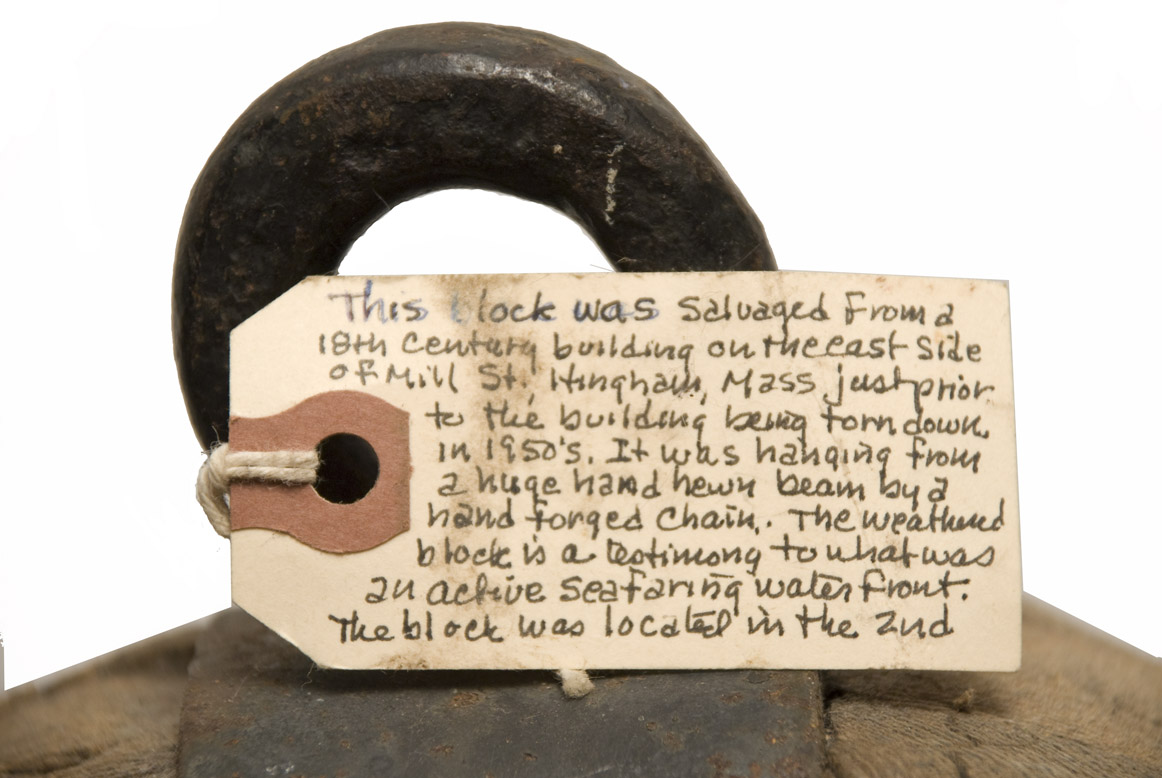 This block was salvaged from a
18th century building on the east side
of Mill St. Hingham, Mass just prior
to the building being torn down,
in 1950's. It was hanging from
a huge hand hewn beam by a
hand forged chain. The weathered
block is a testimony to what was
an active seafaring water front.
The block was located in the 2nd